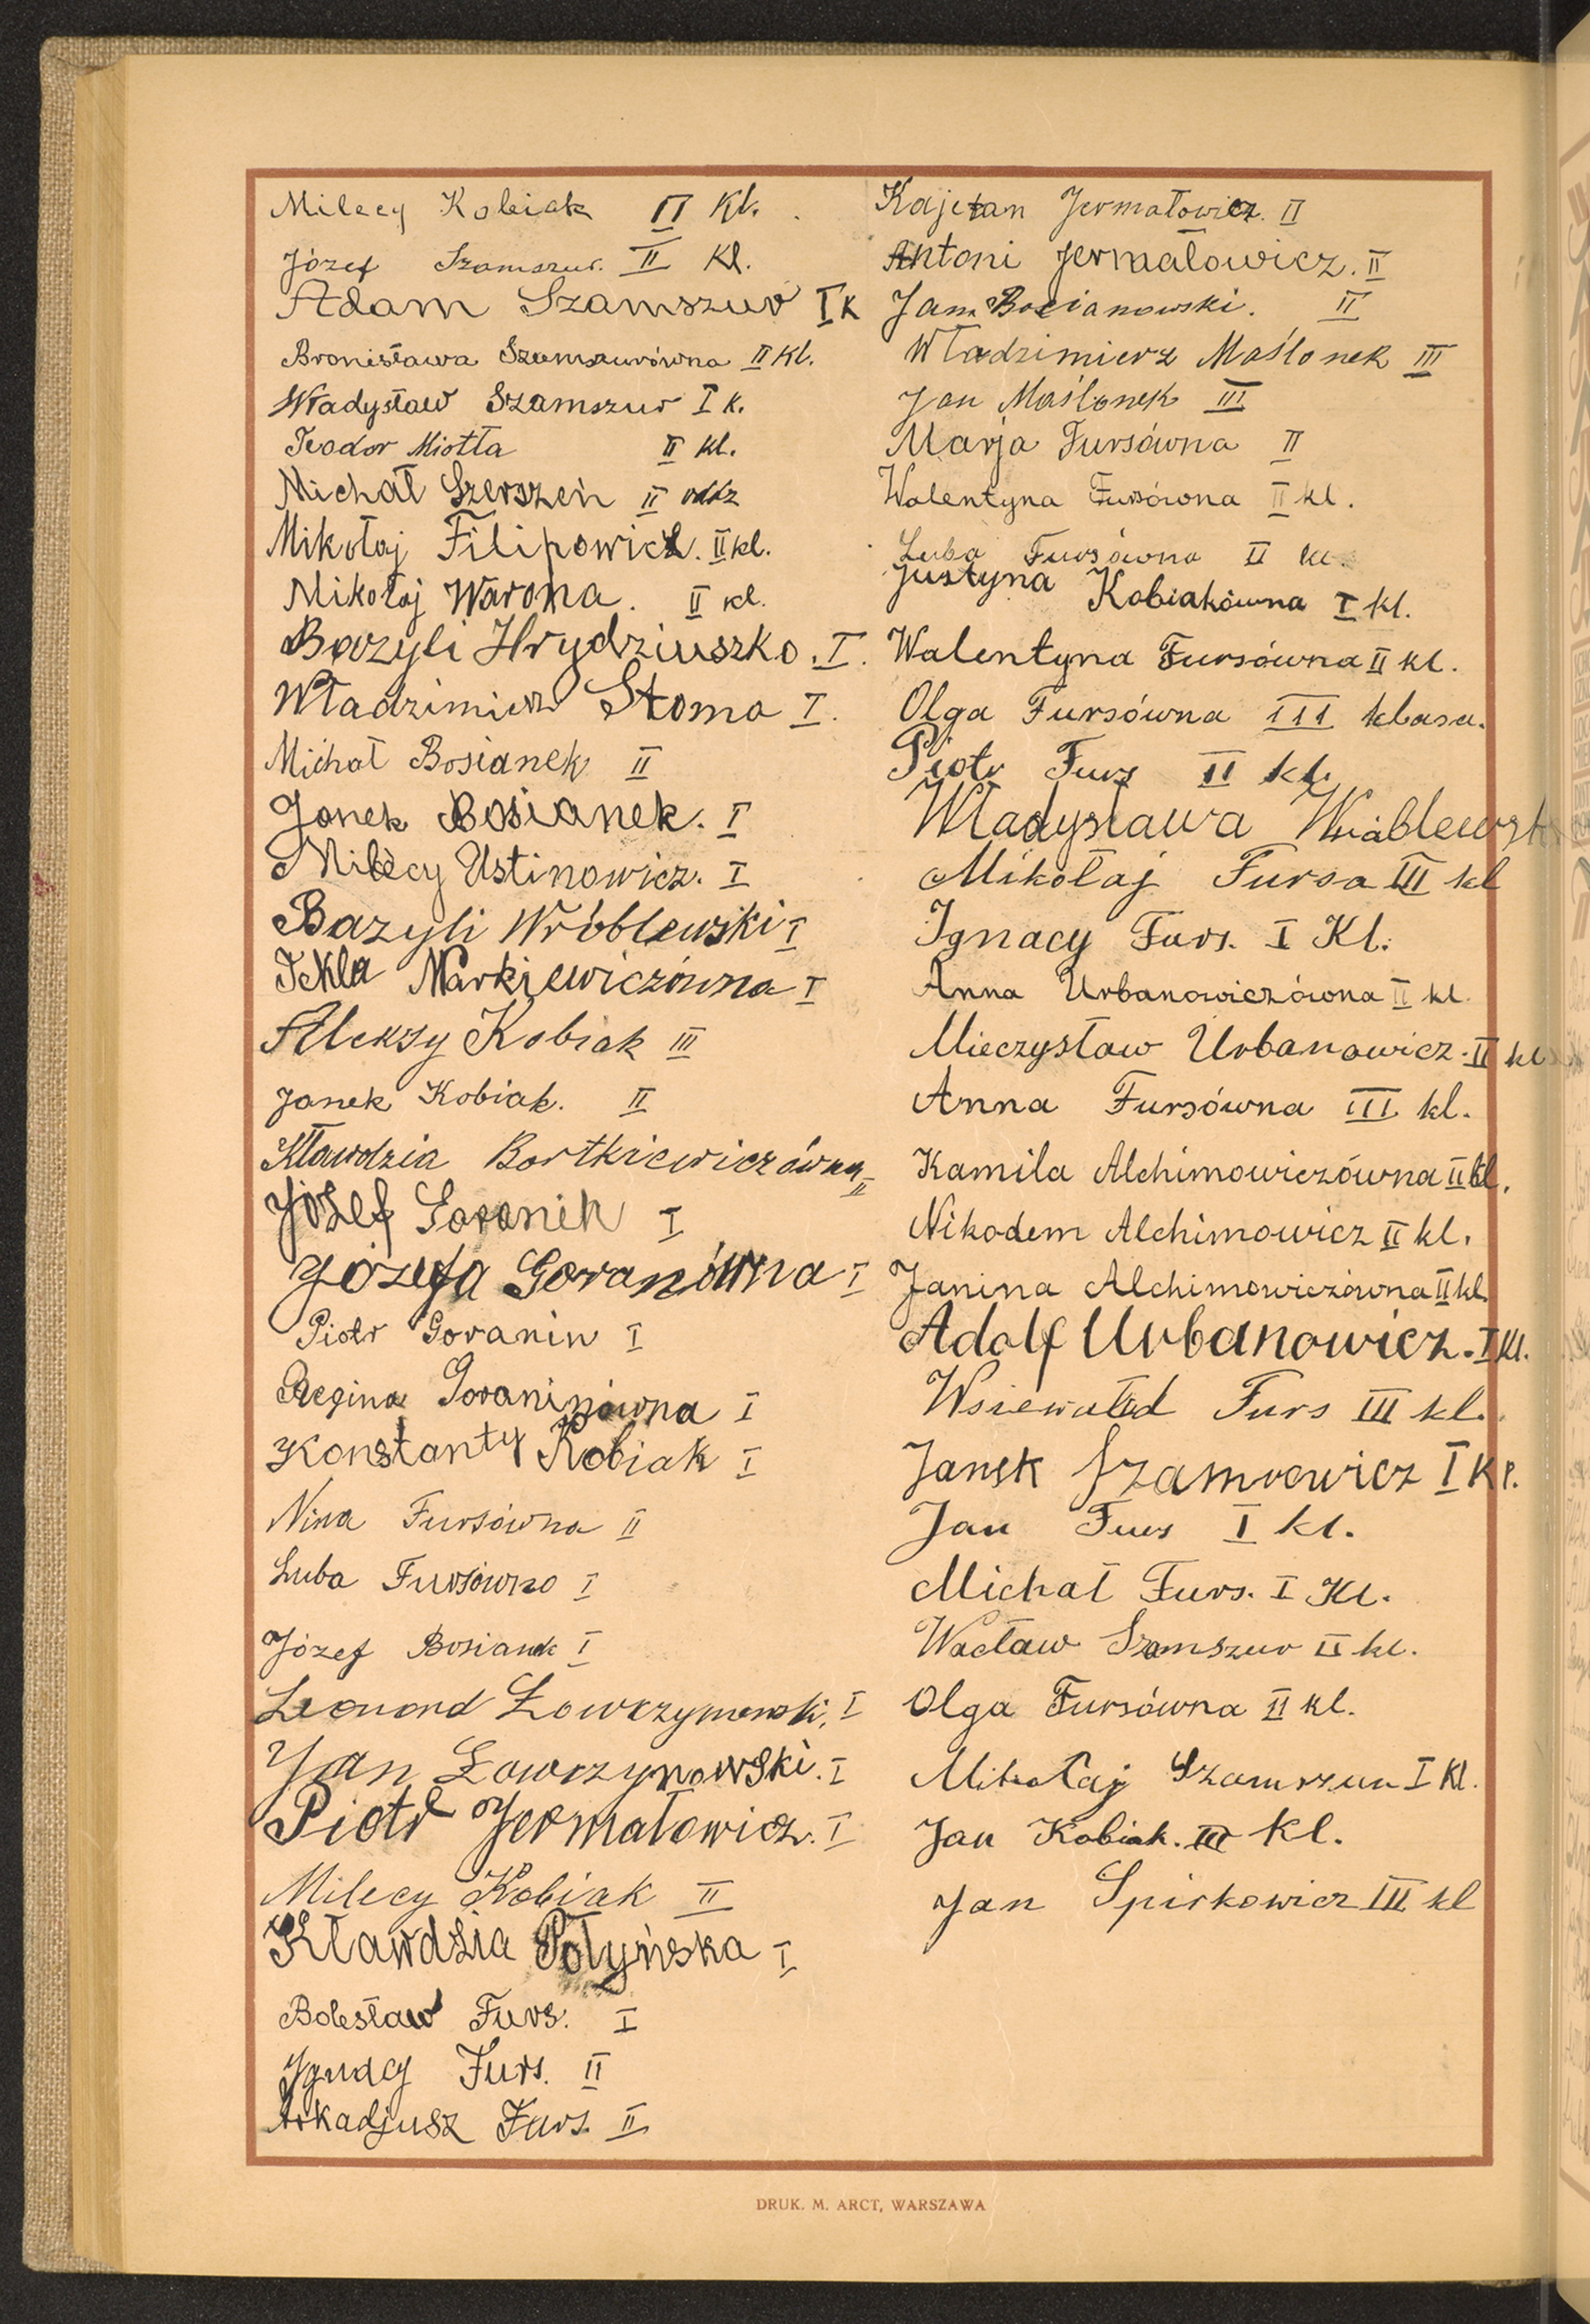 Milecy Kobiak II Kl.
Józef Szamszur. II Kl.
Adam Szamszur I K
Bronisława Szamszurówna II Kl.
Władysław Szamszur I K.
Teodor Miotła II kl.
Michał Szerszeń II oddz
Mikołaj Filipowicz. II kl.
Mikołaj Warona. II kl.
Bazyli Hrydziuszko. I.
Władzimierz Stoma I.
Michał Bosianek II
Janek Bosianek. I
Milecy Ustinowicz. I
Bazyli Wróblewski I
Tekla Markiewiczówna I
Aleksy Kobiak III
Janek Kobiak. II
Kławdzia Bortkiewiczówna II
Józef Goranin I
Józefa Goranówna I
Piotr Goranin I
Regina Goraninówna I
Konstanty Kobiak I
Nina Fursówna II
Luba Fursówna I
Józef Bosianek I
Leonard Ławrzynowski. I
Jan Ławrzynowski. I
Piotr Jermatowicz. I
Milecy Kobiak II
Kławdzia Połyńska I
Bolesław Furs. I
Ignacy Furs. II
Arkadjusz Furs. II
Kajetan Jermatowicz. II
Antoni Jermatowicz. II
Jan Bocianowski. II
Władzimierz Maślonek III
Jan Maślonek III
Marja Fursówna II
Walentyna Fursówna II kl.
Luba Fursówna II kl.
Justyna Kobiakówna I kl.
Walentyna Fursówna II kl.
Olga Fursówna III klasa.
Piotr Furs II kl.
Władysława
Mikołaj Fursa III kl
Ignacy Furs. I Kl.
Anna Urbanowiczówna II kl.
Mieczysław Urbanowicz. II kl
Anna Fursówna III kl.
Kamila Alchimowiczówna II kl.
Nikodem Alchimowicz II kl.
Janina Alchimowiczówna II kl.
Adolf Urbanowicz. I Kl.
Wsiewałod Furs III kl.
Janek Szamrowicz I Kl.
Jan Furs I kl.
Michał Furs. I Kl.
Wacław Szamszur II kl.
Olga Fursówna II kl.
Mikołaj Szamszur I Kl.
Jan Kobiak. III Kl.
Jan Spirkowicz III kl
DRUK. M. ARCT, WARSZAWA